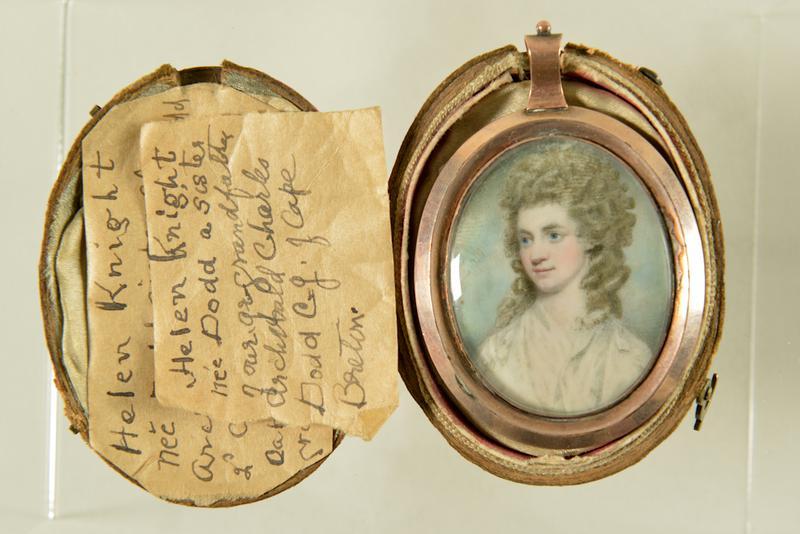 Helen Knight
née
Are
2ⁿ C
Helen Knight
née Dodd a sister
of our gr grandfather
Archibald Charles
Dodd C.J. of Cape
Breton.